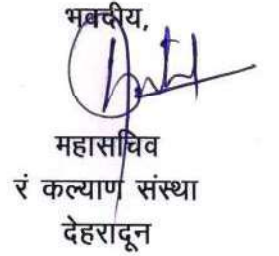 भवदीय,
महासचिव
रं कल्याण संस्था
देहरादून